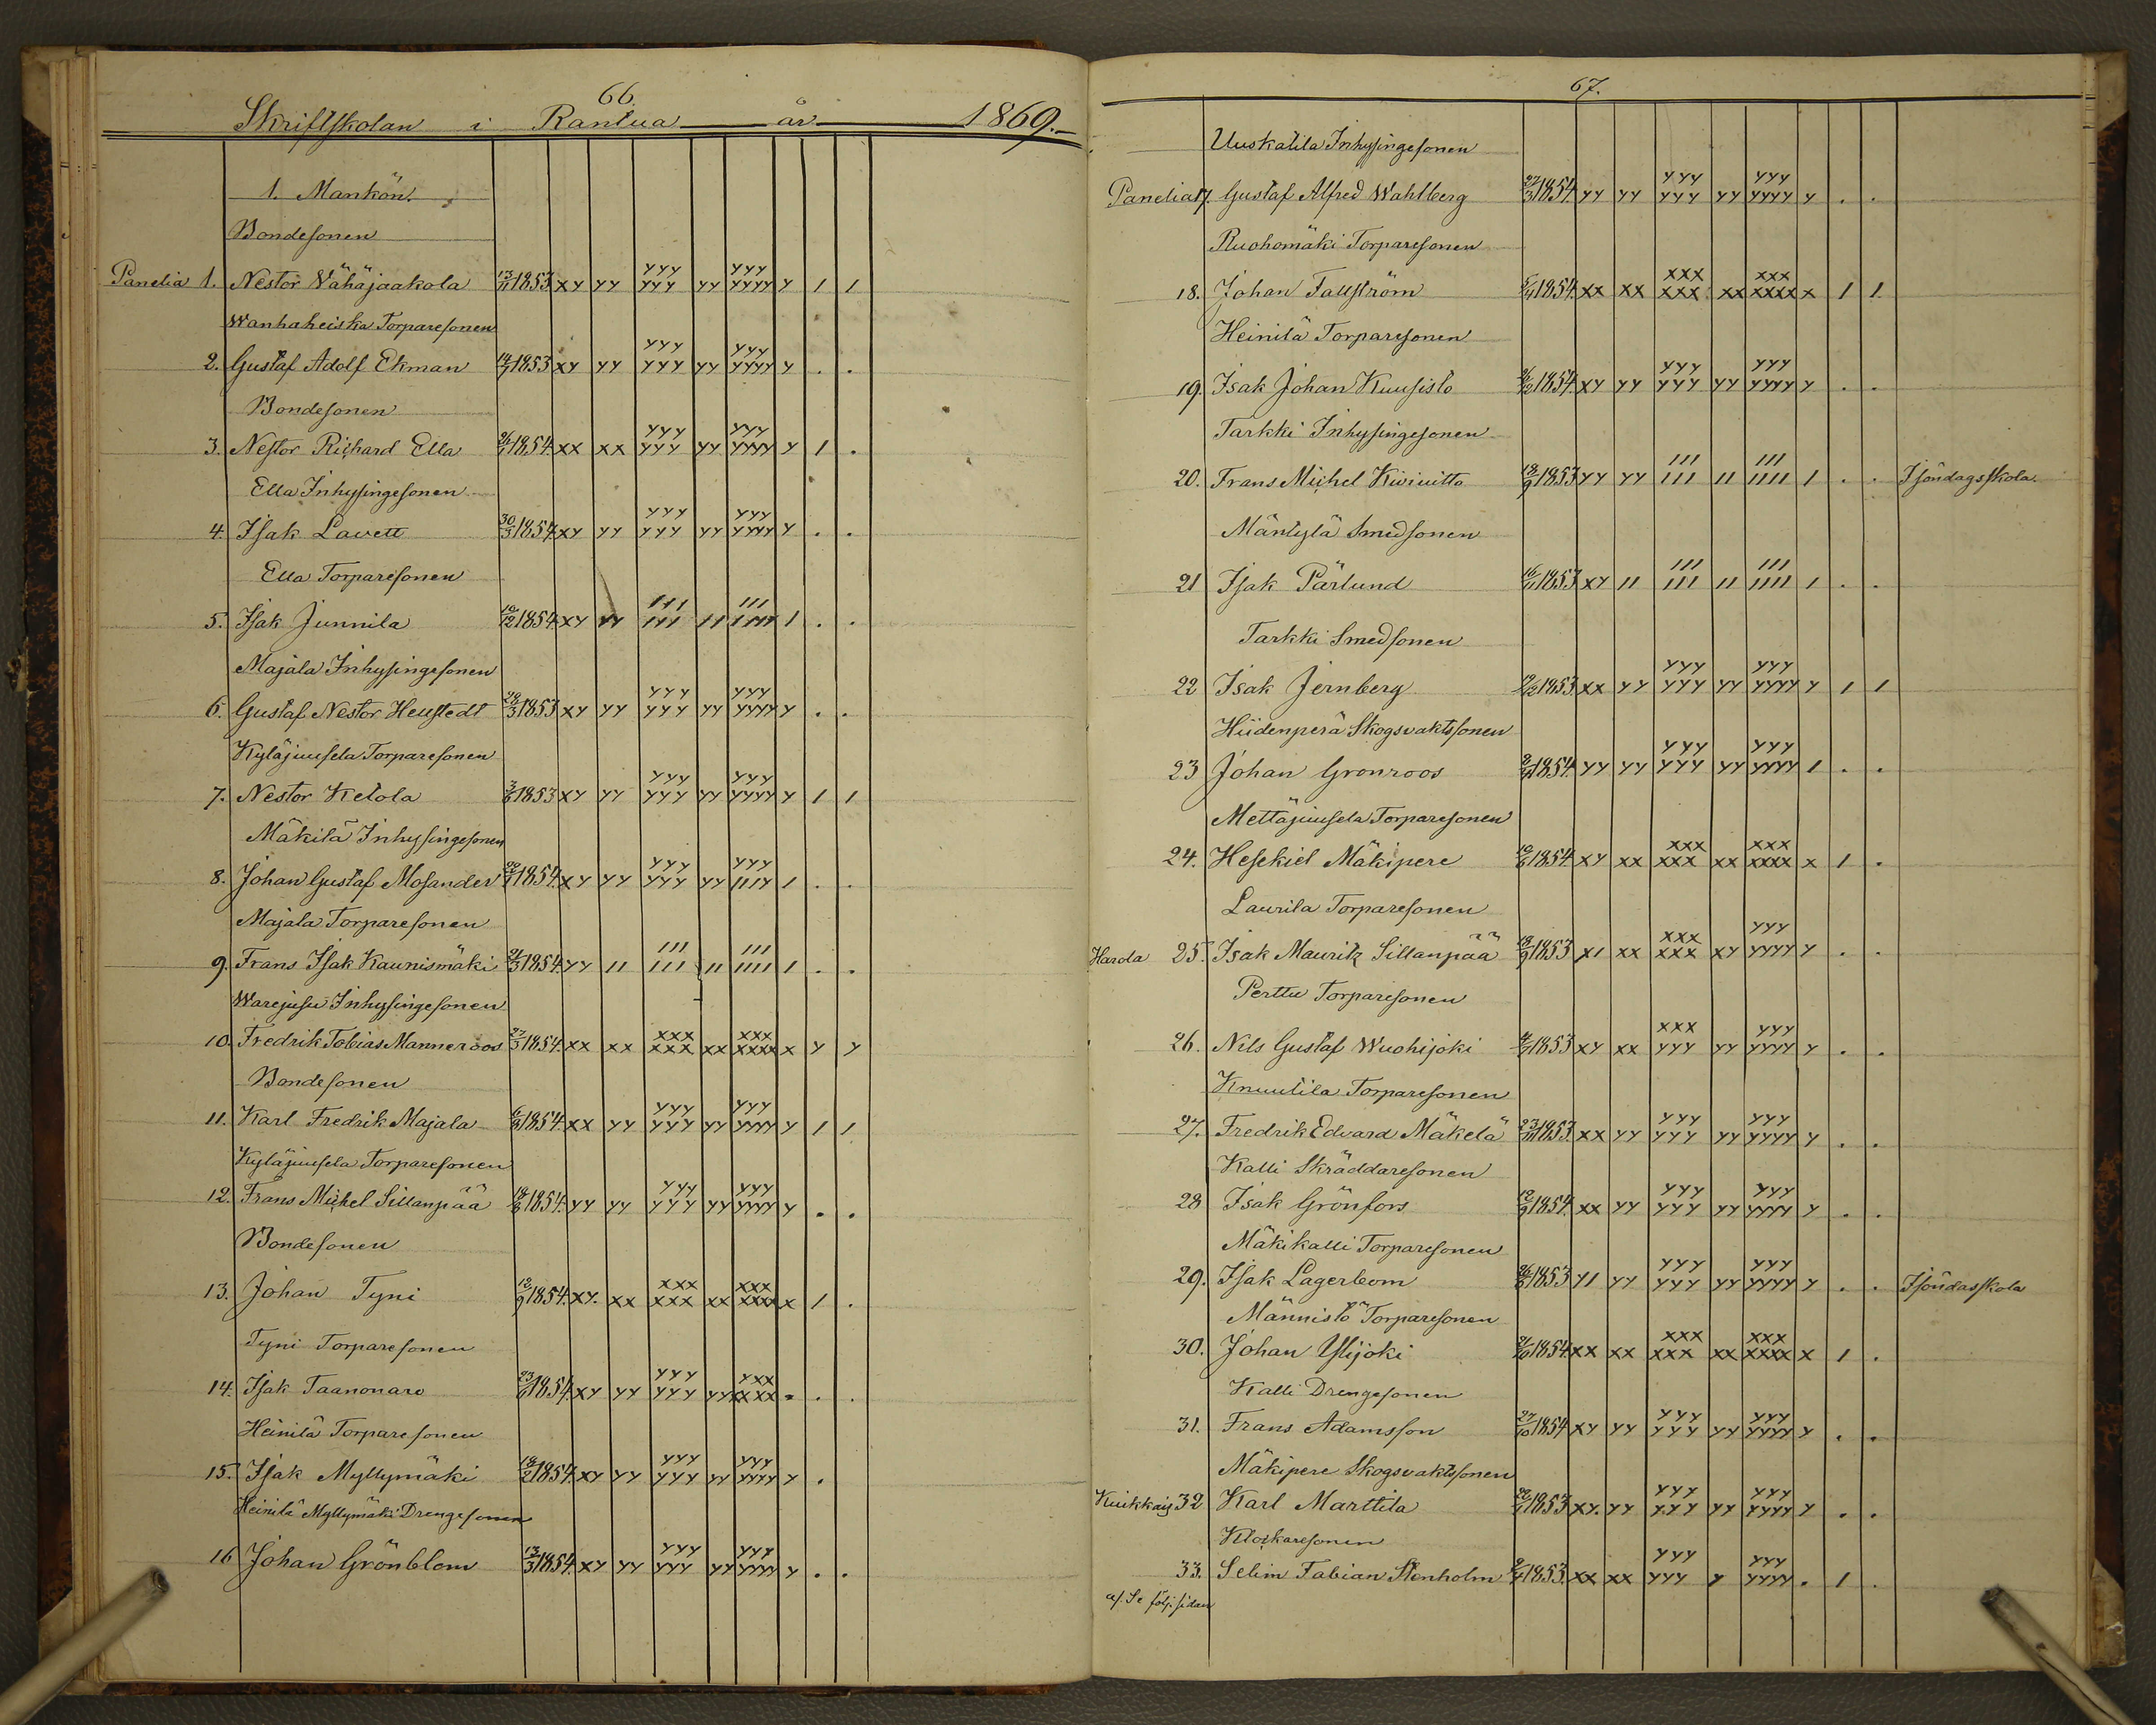 66.
Skriftskolan i Rantua år 1869.
1. Mankön.
Bondesonen
Panelia 1. Nestor Vähäjaakola 13/11 1853 xy yy yyy yyy yy yyy yyyy y 1 1
Wanhaheiska Torparesonen
2. Gustaf Adolf Ekman 14/7 1853 xy yy yyy yyy yy yyy yyyy y . .
Bondesonen
3. Nestor Richard Ella 1854 xx xx yyy yyy yy yyy yyyy y 1 .
Ella Inhysingesonen
4. Isak Lavett 30/3 1854 xy yy yyy yyy yy yyy yyyy y . .
Ella Torparesonen
5. Isak Junnila 16/12 1854 xy yy 111 111 11 111 1111 1 . .
Majala Inhysingesonen
6. Gustaf Nestor Hellstedt 1853 xy yy yyy yyy yy yyy yyyy y . .
Kyläjuusela Torparesonen
7. Nestor Ketola 1853 xy yy yyy yyy yy yyy yyyy y 1 1
Mäkilä Inhysingesonen
8. Johan Gustaf Mosander 1854 xy yy yyy yyy yy yyy 111y 1 . .
Majala Torparesonen
9. Frans Isak Kaunismäki 1854 yy 11 111 111 11 111 1111 1 . .
Warejusu Inhysingesonen
10. Fredrik Tobias Manneroos 27/3 1854 xx xx xxx xxx xx xxx xxxx x y y
Bondesonen
11. Karl Fredrik Majala 1854 xx yy yyy yyy yy yyy yyyy y 1 1
Kyläjuusela Torparesonen
12. Frans Michel Sillanpää 1854 yy yy yyy yyy yy yyy yyyy y . .
Bondesonen
13. Johan Tyni 12/9 1854. xy. xx xxx xxx xx xxx xxxx x 1 .
Tyni Torparesonen
14. Isak Taanonaro 1854 xy yy yyy yyy yy yxx xxxx . . .
Heinilä Torparesonen
15. Isak Myllymäki 1854 xy yy yyy yyy yy yyy yyyy y .
Heinilä Myllymäki Drengesonen
16 Johan Grönblom 13/3 1854 xy yy yyy yyy yy yyy yyyy y . .
67.
Uuskalila Inhysingesonen
Panelia 17. Gustaf Alfred Wahlberg 27/3 1854 yy yy yyy yyy yy yyy yyyy y . .
Ruohomäki Torparesonen
18. Johan Fallström 1854 xx xx xxx xxx xx xxx xxxx x 1 1
Heinilä Torparesonen
19. Isak Johan Kuusisto 1854 xy yy yyy yyy yy yyy yyyy y . .
Tarkki Inhysingesonen
20. Frans Michel Kiviuitto 1853 yy yy 111 111 11 111 1111 1 . . I söndagsskola
Mäntylä Smedsonen
21 Isak Pärlund 16/11 1853 xy 11 111 111 11 111 1111 1 . .
Tarkki Smedsonen
22 Isak Jernberg 1853 xx yy yyy yyy yy yyy yyyy y 1 1
Hiidenperä Skogsvaktssonen
23 Johan Gronroos 1854 yy yy yyy yyy yy yyy yyyy 1 . .
Mettäjuusela Torparesonen
24. Hesekiel Mäkipere 1854 xy xx xxx xxx xx xxx xxxx x 1 .
Laurila Torparesonen
Harola 25. Isak Mauritz Sillanpää 1853 x1 xx xxx xxx xy yyy yyyy y . .
Perttu Torparesonen
26. Nils Gustaf Wuohijoki 1853 xy xx xxx yyy yy yyy yyyy y . .
Knuutila Torparesonen
27. Fredrik Edvard Mäkelä 1853 xx yy yyy yyy yy yyy yyyy y . .
Kalli Skräddaresonen
28 Isak Grönfors 12/9 1854 xx yy yyy yyy yy yyy yyyy y . .
Mäkikalli Torparesonen
29. Isak Lagerbom 1853 y1 yy yyy yyy yy yyy yyyy y . . I söndasskola
Männistö Torparesonen
30. Johan Ylijoki 1854 xx xx xxx xxx xx xxx xxxx x 1 .
Kalli Drengesonen
31. Frans Adamsson 27/10 1854 xy yy yyy yyy yy yyy yyyy y . .
Mäkipere Skogsvaktssonen
32 Karl Marttila 1853 xy. yy yyy yyy yy yyy yyyy y . .
Klockaresonen
33. Selim Fabian Stenholm 1853. xx xx yyy yyy y yyy yyyy . 1 .
a/. Se följ. sidan